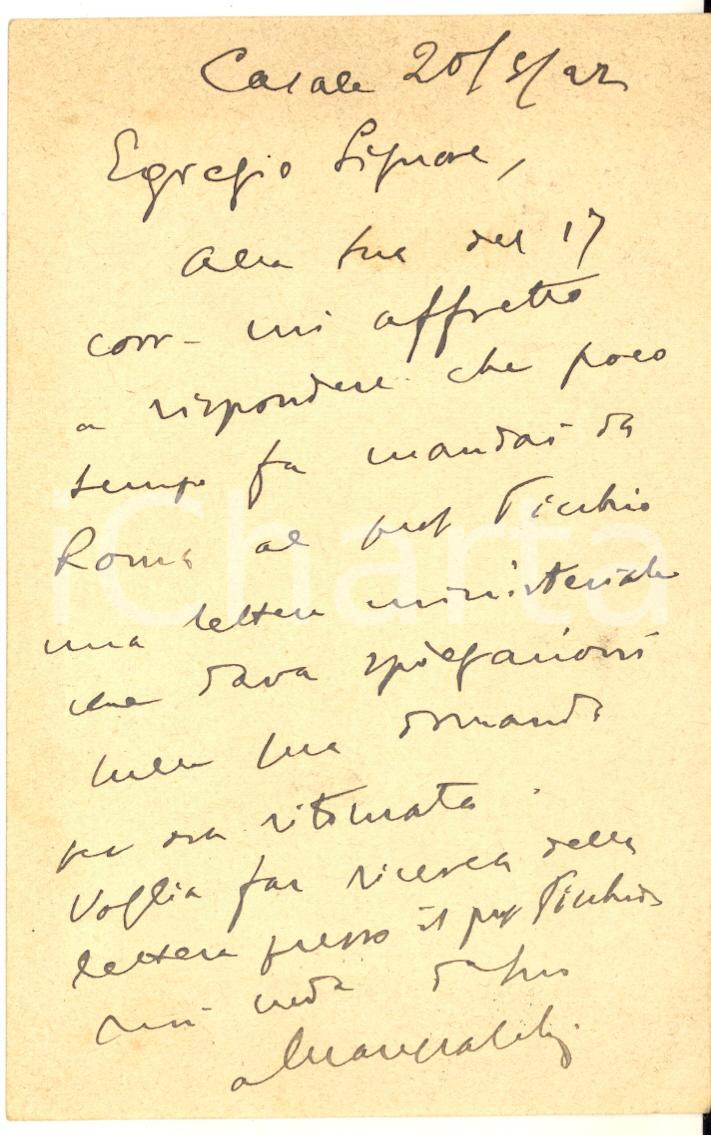 Casale 20/5/22
Egregio Signore,
Alla sua del 17
corr- mi affretto
a rispondere che poco
tempo fa mandai da
Roma al prof
una lettera ministeriale
che dava spiegazioni
sulla sua domanda
per ora ritornata.
Voglia far ricerca della
lettera presso il prof
iCharta